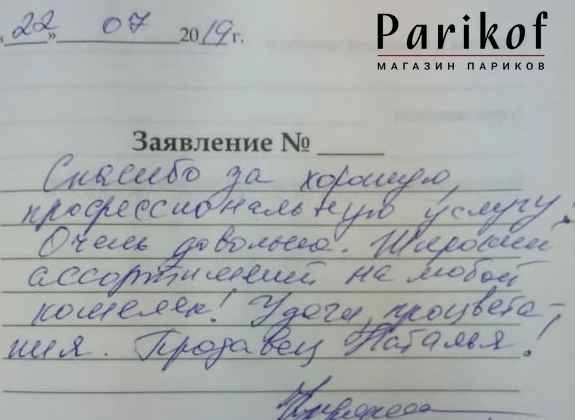 «22» 07 2019г.
Parikof
МАГАЗИН ПАРИКОВ
Заявление №
Спасибо за хорошую,
профессиональную услугу!
Очень довольна. Широкий
ассортимент на любой
кошелек! Удачи, процвета-
ния. Продавец Наталья!